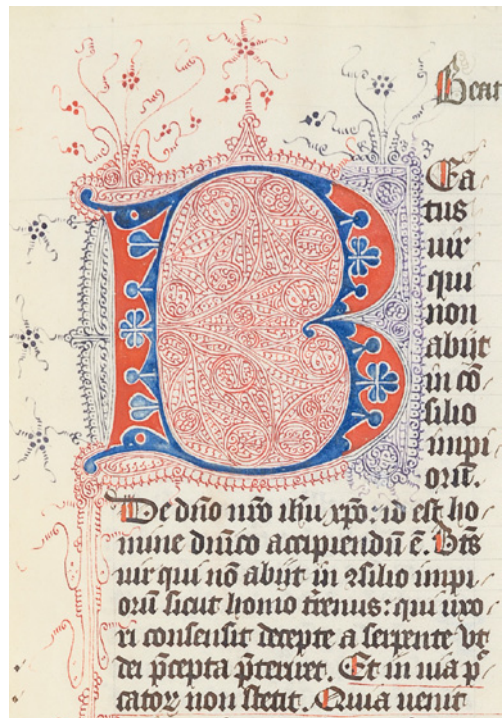 Beat
B
Ea
tus
uir
qui
non
abijt
in cō
silio
impi
orū.
De dño nr̄o ihū xp̄o. id est ho
mine dñico accipiendū ē. Bt̄s
uir qui nō abijt in ꝯsilio impi
orū sicut homo t̄renus: qui uxo
ri consensit decepte a serpente vt
dei p̄cepta p̄teriret. Et in uia p̄
catoꝝ non stetit. Quia uenit